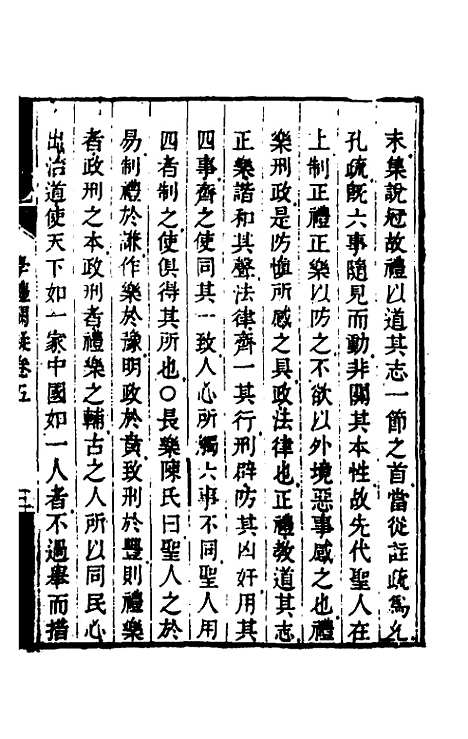 末集說冠故禮以道其志一節之首當從註疏爲允
孔疏旣六事隨見而動非關其本性故先代聖人在
上制正禮正樂以防之不欲以外境惡事感之也禮
樂刑政是防愼所感之具政法律也正禮教道其志
正樂諧和其聲法律齊一其行刑辟防其凶奸用其
四事齊之使同其一致人心所觸六事不同聖人用
四者制之使俱得其所也○長樂陳氏曰聖人之於
易制禮於謙作樂於豫明政於賁致刑於豐則禮樂
者政刑之本政刑者禮樂之輔古之人所以同民心
出治道使天下如一家中國如一人者不過舉而措
卷五
三